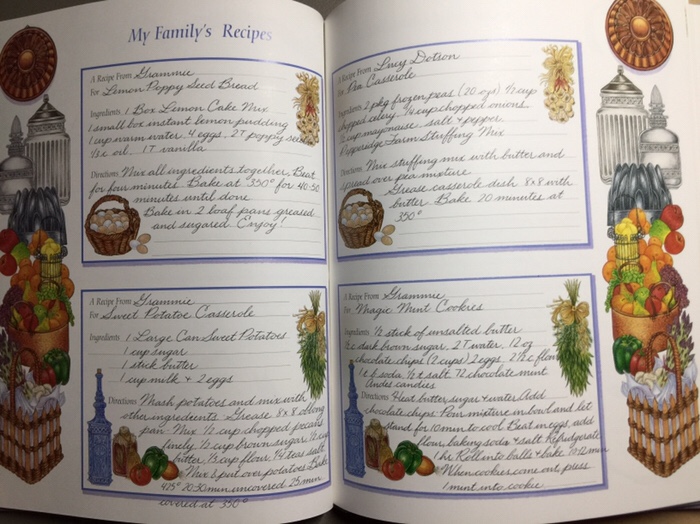 My Family's Recipes
A Recipe From Grammie
For Lemon Poppy Seed Bread
Ingredients 1 Box Lemon Cake Mix
1 small box instant lemon pudding
1 cup warm water 4 eggs 2T poppy seeds
½ c oil 1T vanilla
Directions Mix all ingredients together. Beat
for four minutes. Bake at 350° for 40-50
minutes until done
Bake in 2 loaf pans greased
and sugared. Enjoy!
A Recipe From Grammie
For Sweet Potatoe Casserole
Ingredients 1 Large Can Sweet Potatoes
1 cup sugar
1 stick butter
1 cup milk + 2 eggs
Directions Mash potatoes and mix with
other ingredients. Grease 8x8 oblong
pan. Mix ½ cup chopped pecans
finely ½ cup brown sugar ½ cup
butter ½ cup flour ¼ teas salt
Mix & put over potatoes Bake
425° 20-30 min. uncovered 25 min.
covered at 350°
A Recipe From Lucy Dotson
For Pea Casserole
Ingredients 2 pkg frozen peas (20 ozs) ½ cup
chopped celery ¼ cup chopped onions
½ cup mayonaise salt & pepper
Pepperidge Farm Stuffing Mix
Directions Mix stuffing mix with butter and
spread over pea mixture
Grease casserole dish 8x8 with
butter. Bake 20 minutes at
350°
A Recipe From Grammie
For Magic Mint Cookies
Ingredients ½ stick of unsalted butter
½ c dark brown sugar 2T water 12 oz
chocolate chips (2 cups) 2 eggs 2½ c flour
1 t b soda ½ t salt 72 chocolate mint
Andes candies
Directions Heat butter, sugar & water Add
chocolate chips. Pour mixture in bowl and let
stand for 10 min to cool Beat in eggs, add
flour, baking soda & salt Refridgerate
1 hr Roll into balls & bake 10-12 min
When cookies come out, press
1 mint into cookie